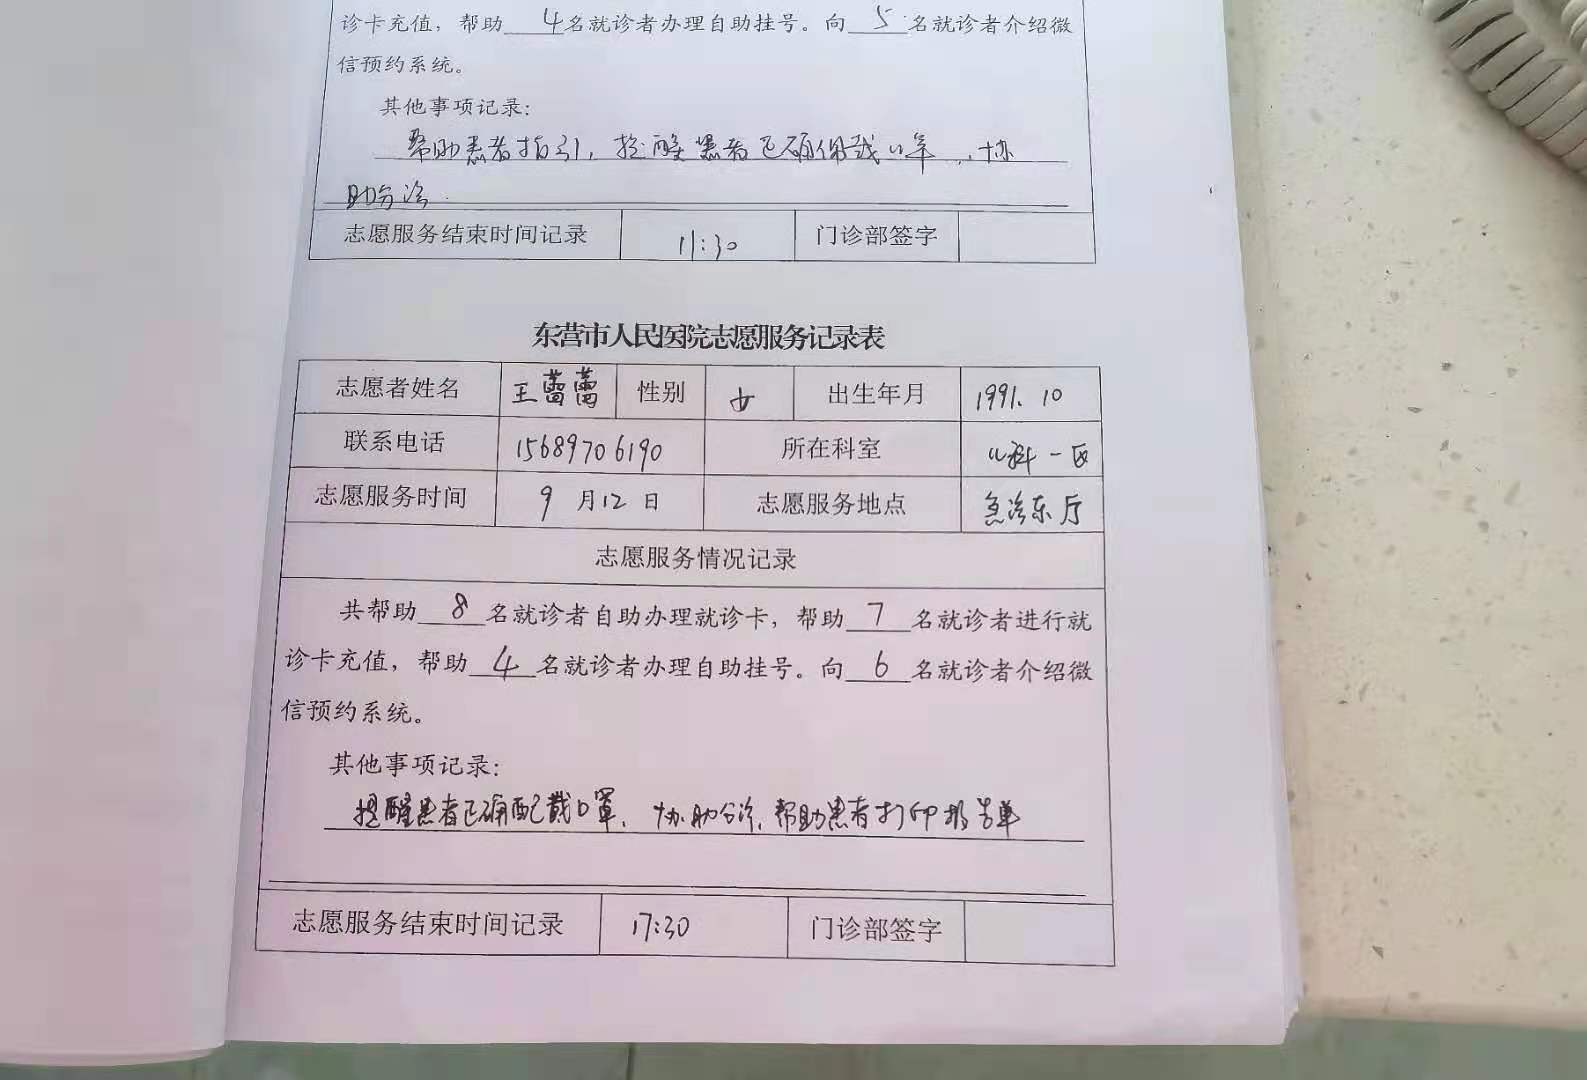 诊卡充值，帮助 4 名就诊者办理自助挂号。向 5 名就诊者介绍微
信预约系统。
其他事项记录：
帮助患者指引，提醒患者正确佩戴口罩，协
助分诊.
志愿服务结束时间记录 11:30 门诊部签字
东营市人民医院志愿服务记录表
志愿者姓名 王蕾蕾 性别 女 出生年月 1991. 10
联系电话 15689706190 所在科室 儿科一区
志愿服务时间 9 月 12 日 志愿服务地点 急诊东厅
志愿服务情况记录
共帮助 8 名就诊者自助办理就诊卡，帮助 7 名就诊者进行就
诊卡充值，帮助 4 名就诊者办理自助挂号。向 6 名就诊者介绍微
信预约系统。
其他事项记录：
提醒患者正确配戴口罩、协助分诊、帮助患者打印报告单
志愿服务结束时间记录 17:30 门诊部签字